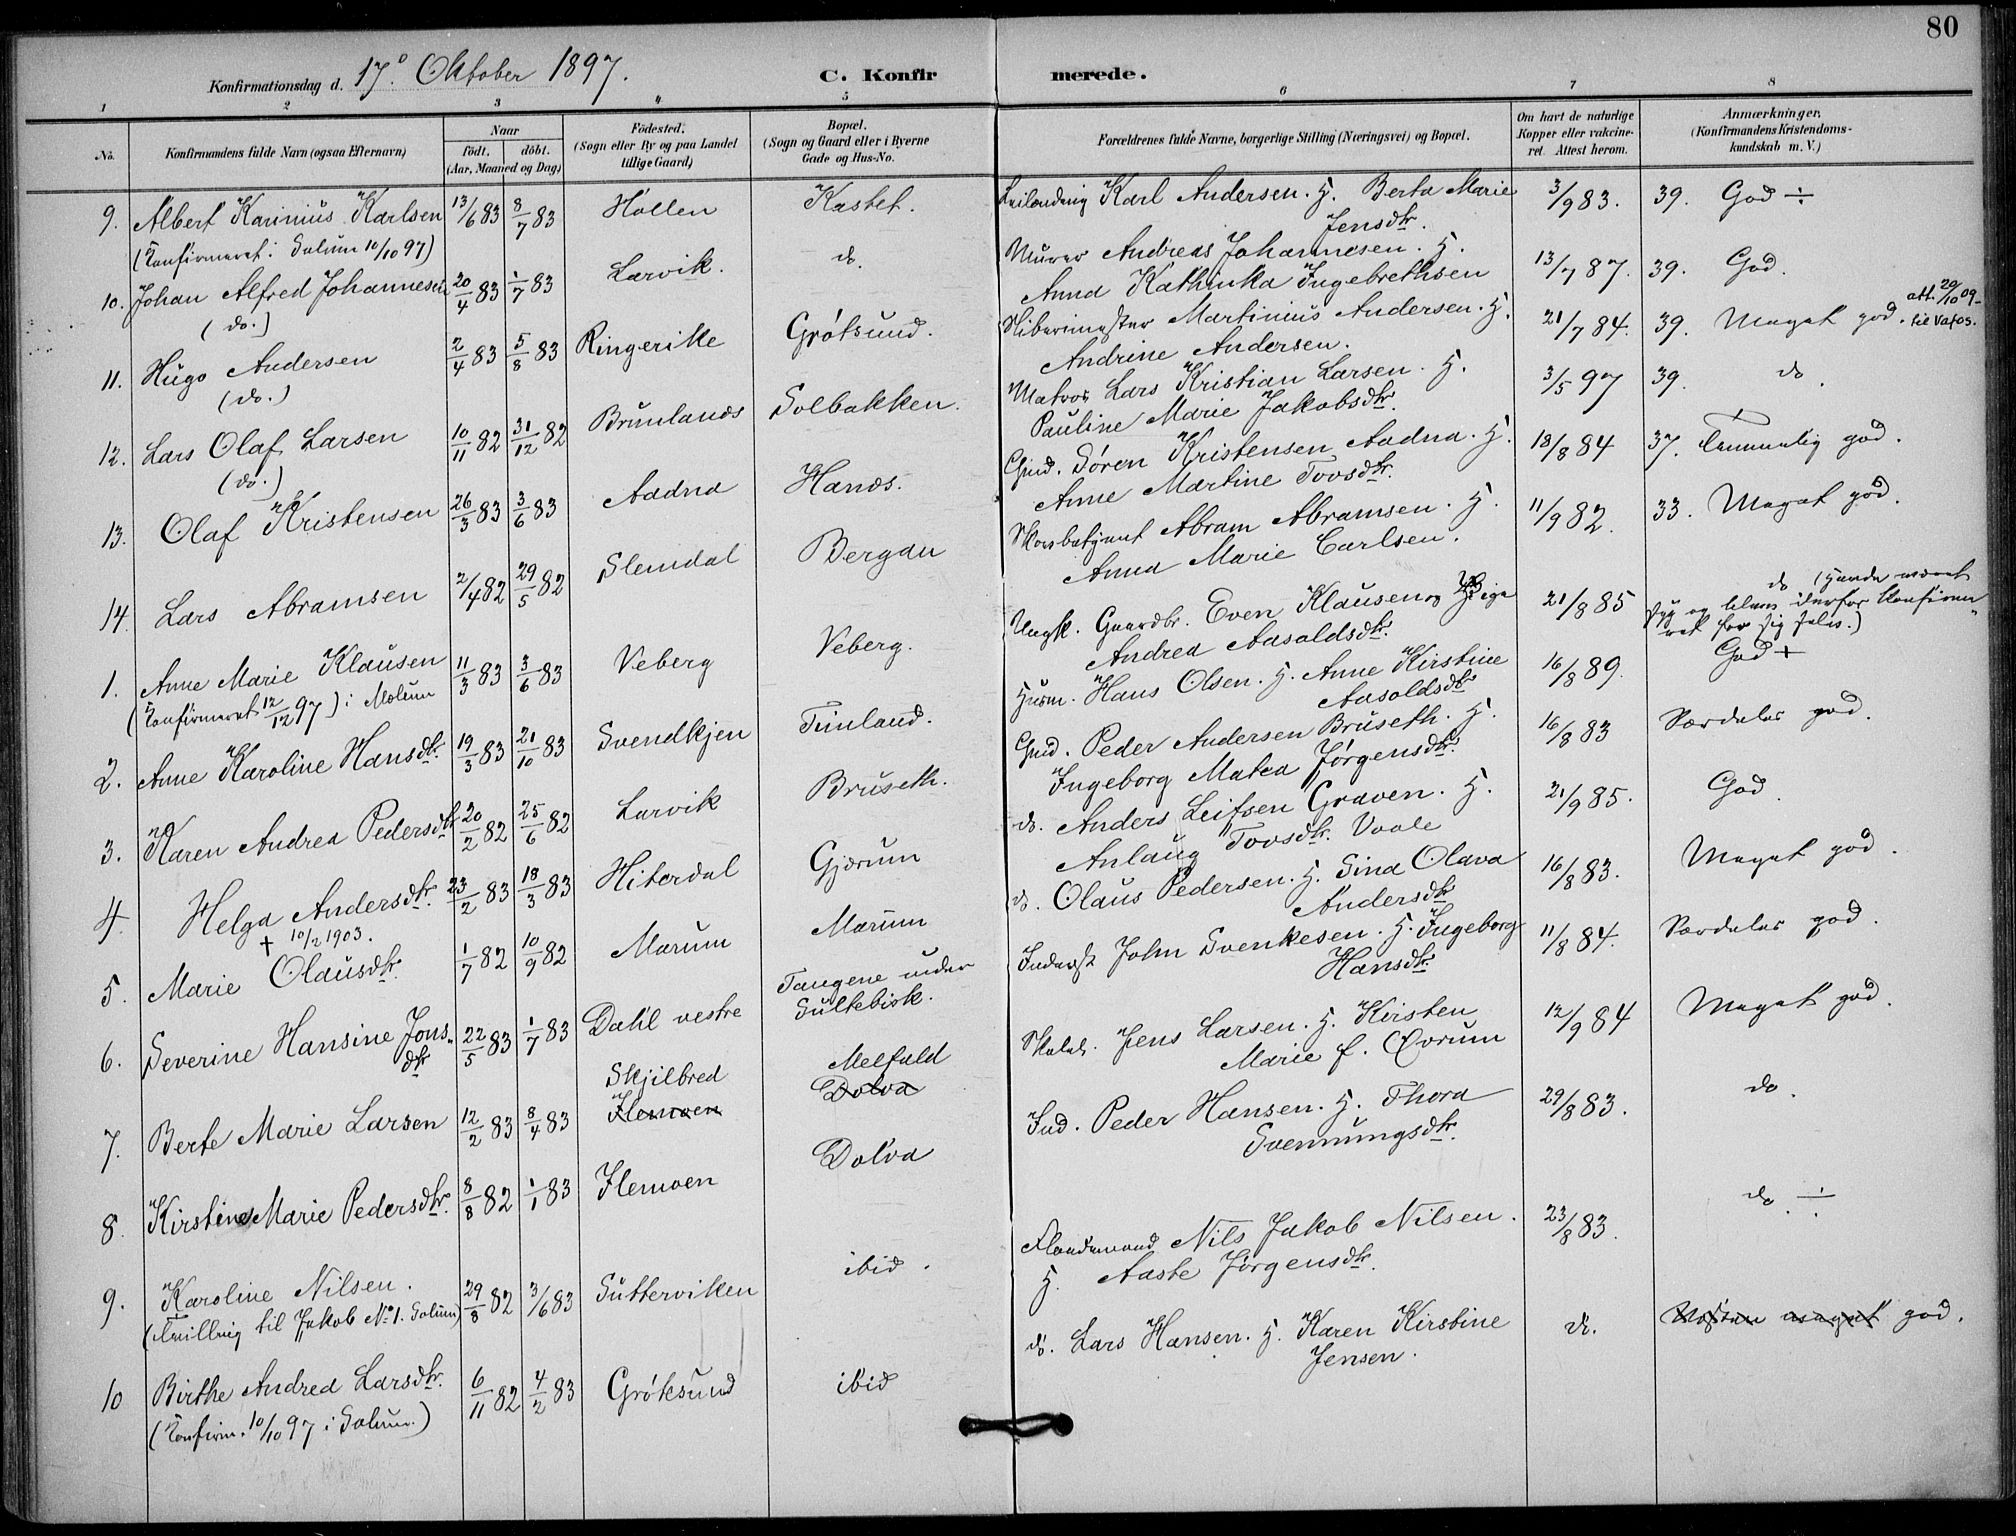 80
Konfirmationsdag d. 17de Oktober 1897.
C. Konfirmerede.
1 2 3 4 5 6 7 8
No.
Konfirmandens fulde Navn (ogsaa Efternavn)
Naar
født. døbt.
(Aar, Maaned og Dag)
Fødested.
(Sogn eller By og paa Landet
tillige Gaard)
Bopæl.
(Sogn og Gaard eller i Byerne
Gade og Hus-No.
Forældrenes fulde Navne, borgerlige Stilling (Næringsvei) og Bopæl.
Om havt de naturlige
Kopper eller vakcine-
ret. Attest herom.
Anmærkninger.
(Konfirmandens Kristendoms-
kundskab m. V.)
9. Albert Karinius Karlsen 13/6 83 8/7 83 Hollen Kastet. Leilænding Karl Andersen. H. Berta Marie 3/9 83. 39. God ÷
Jensdtr.
(Konfirmeret i Solum 10/10 97)
10. Johan Alfred Johannesen 20/4 83 1/7 83 Larvik. do. Murer Andreas Johannesen. H. 13/7 87. 39. God.
Anna Kathinka Ingebrethsen
(do.)
11. Hugo Andersen 2/4 83 5/8 83 Ringerike Grøtsund. Slibermester Martinius Andersen. H. 21/7 84. 39. Meget god. att. 29/10 09 til Vafos.
Andrine Andersen.
(do.)
12. Lars Olaf Larsen 10/11 82 31/12 82 Brunlanes Solbakken. Matros Lars Kristian Larsen. H. 3/5 97 39. do.
Pauline Marie Jakobsdtr.
(do.)
13. Olaf Kristensen 26/3 83 3/6 83 Aadna Hanes. Gmd. Søren Kristensen Aadna. H. 18/8 84 37. Temmelig god.
Anne Martine Tovsdtr.
14. Lars Abramsen 2/4 82 29/5 82 Slemdal Bergan Skovbetjent Abram Abramsen. H. 11/9 82. 33. Meget god.
Anna Marie Carlsen.
1. Anne Marie Klausen 11/3 83 3/6 83 Veberg Veberg. Ungk. Gaardbr. Even Klausen og Pige 21/8 85 do (Havde været
Andrea Aasoldsdtr. syg og blev derfor konfirme-
ret for sig selv.)
(Konfirmeret 12/12 97) i Mælum
2. Anne Karoline Hansdtr. 19/3 83 21/10 83 Svendkjen Tinland. Husm. Hans Olsen. H. Anne Kirstine 16/8 89. God +
Aasoldsdtr
3. Karen Andrea Pedersdtr 20/2 82 25/6 82 Larvik Bruseth. Gmd. Peder Andersen Bruseth. H. 16/8 83 Særdeles god.
Ingeborg Matea Jørgensdtr.
4. Helga Andersdtr. 23/2 83 18/3 83 Hiterdal Gjærum do. Anders Leifsen Graven. H. 21/9 85. God.
Anlaug Tovsdtr. Vaale
+ 10/2 1903.
5. Marie Olausdtr. 1/7 82 10/9 82 Mærum Mærum do. Olaus Pedersen. H. Sina Olava 16/8 83. Meget god.
Andersdtr
6. Severine Hansine Jons- 22/5 83 1/7 83 Dahl vestre Tangene under Inderst John Svenkesen. H. Ingeborg 11/8 84. Særdeles god.
dtr Sultebisk. Hansdtr.
7. Berte Marie Larsen 12/2 83 8/4 83 Skjilbred Melfald Skolel. Jens Larsen. H. Kirsten 12/9 84 Meget god.
Flemoen Dolva Marie f. Øvrum
8. Kirstine Marie Pedersdtr. 8/8 82 1/1 83 Flemoen Dolva Ind. Peder Hansen. H. Thora 29/8 83. do.
Svennungsdtr.
9. Karoline Nilsen. 29/8 82 3/6 83 Sutterviken ibid. Pladsmand Nils Jakob Nilsen. 23/8 83. do ÷
H. Aaste Jørgensdtr.
(Tvilling til Jakob No 1. Solum)
10 Birthe Andrea Larsdtr. 6/11 82 4/2 83 Grøtsund ibid do. Lars Hansen. H. Karen Kirstine do. Næsten meget god.
Jensen.
(Konfirm. 10/10 97 i Solum.)